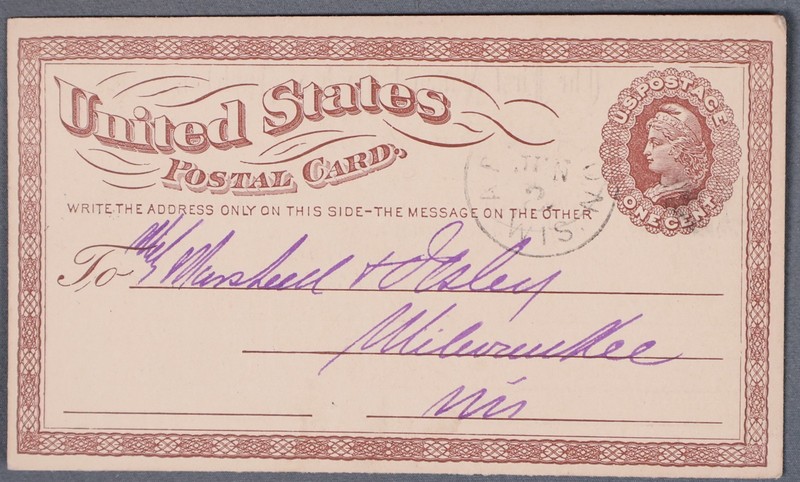 United States
Postal Card.
U.S. POSTAGE
ONE CENT
JUN
WIS.
WRITE THE ADDRESS ONLY ON THIS SIDE-THE MESSAGE ON THE OTHER
To Marshall & Ilsley
Milwaukee
Wis